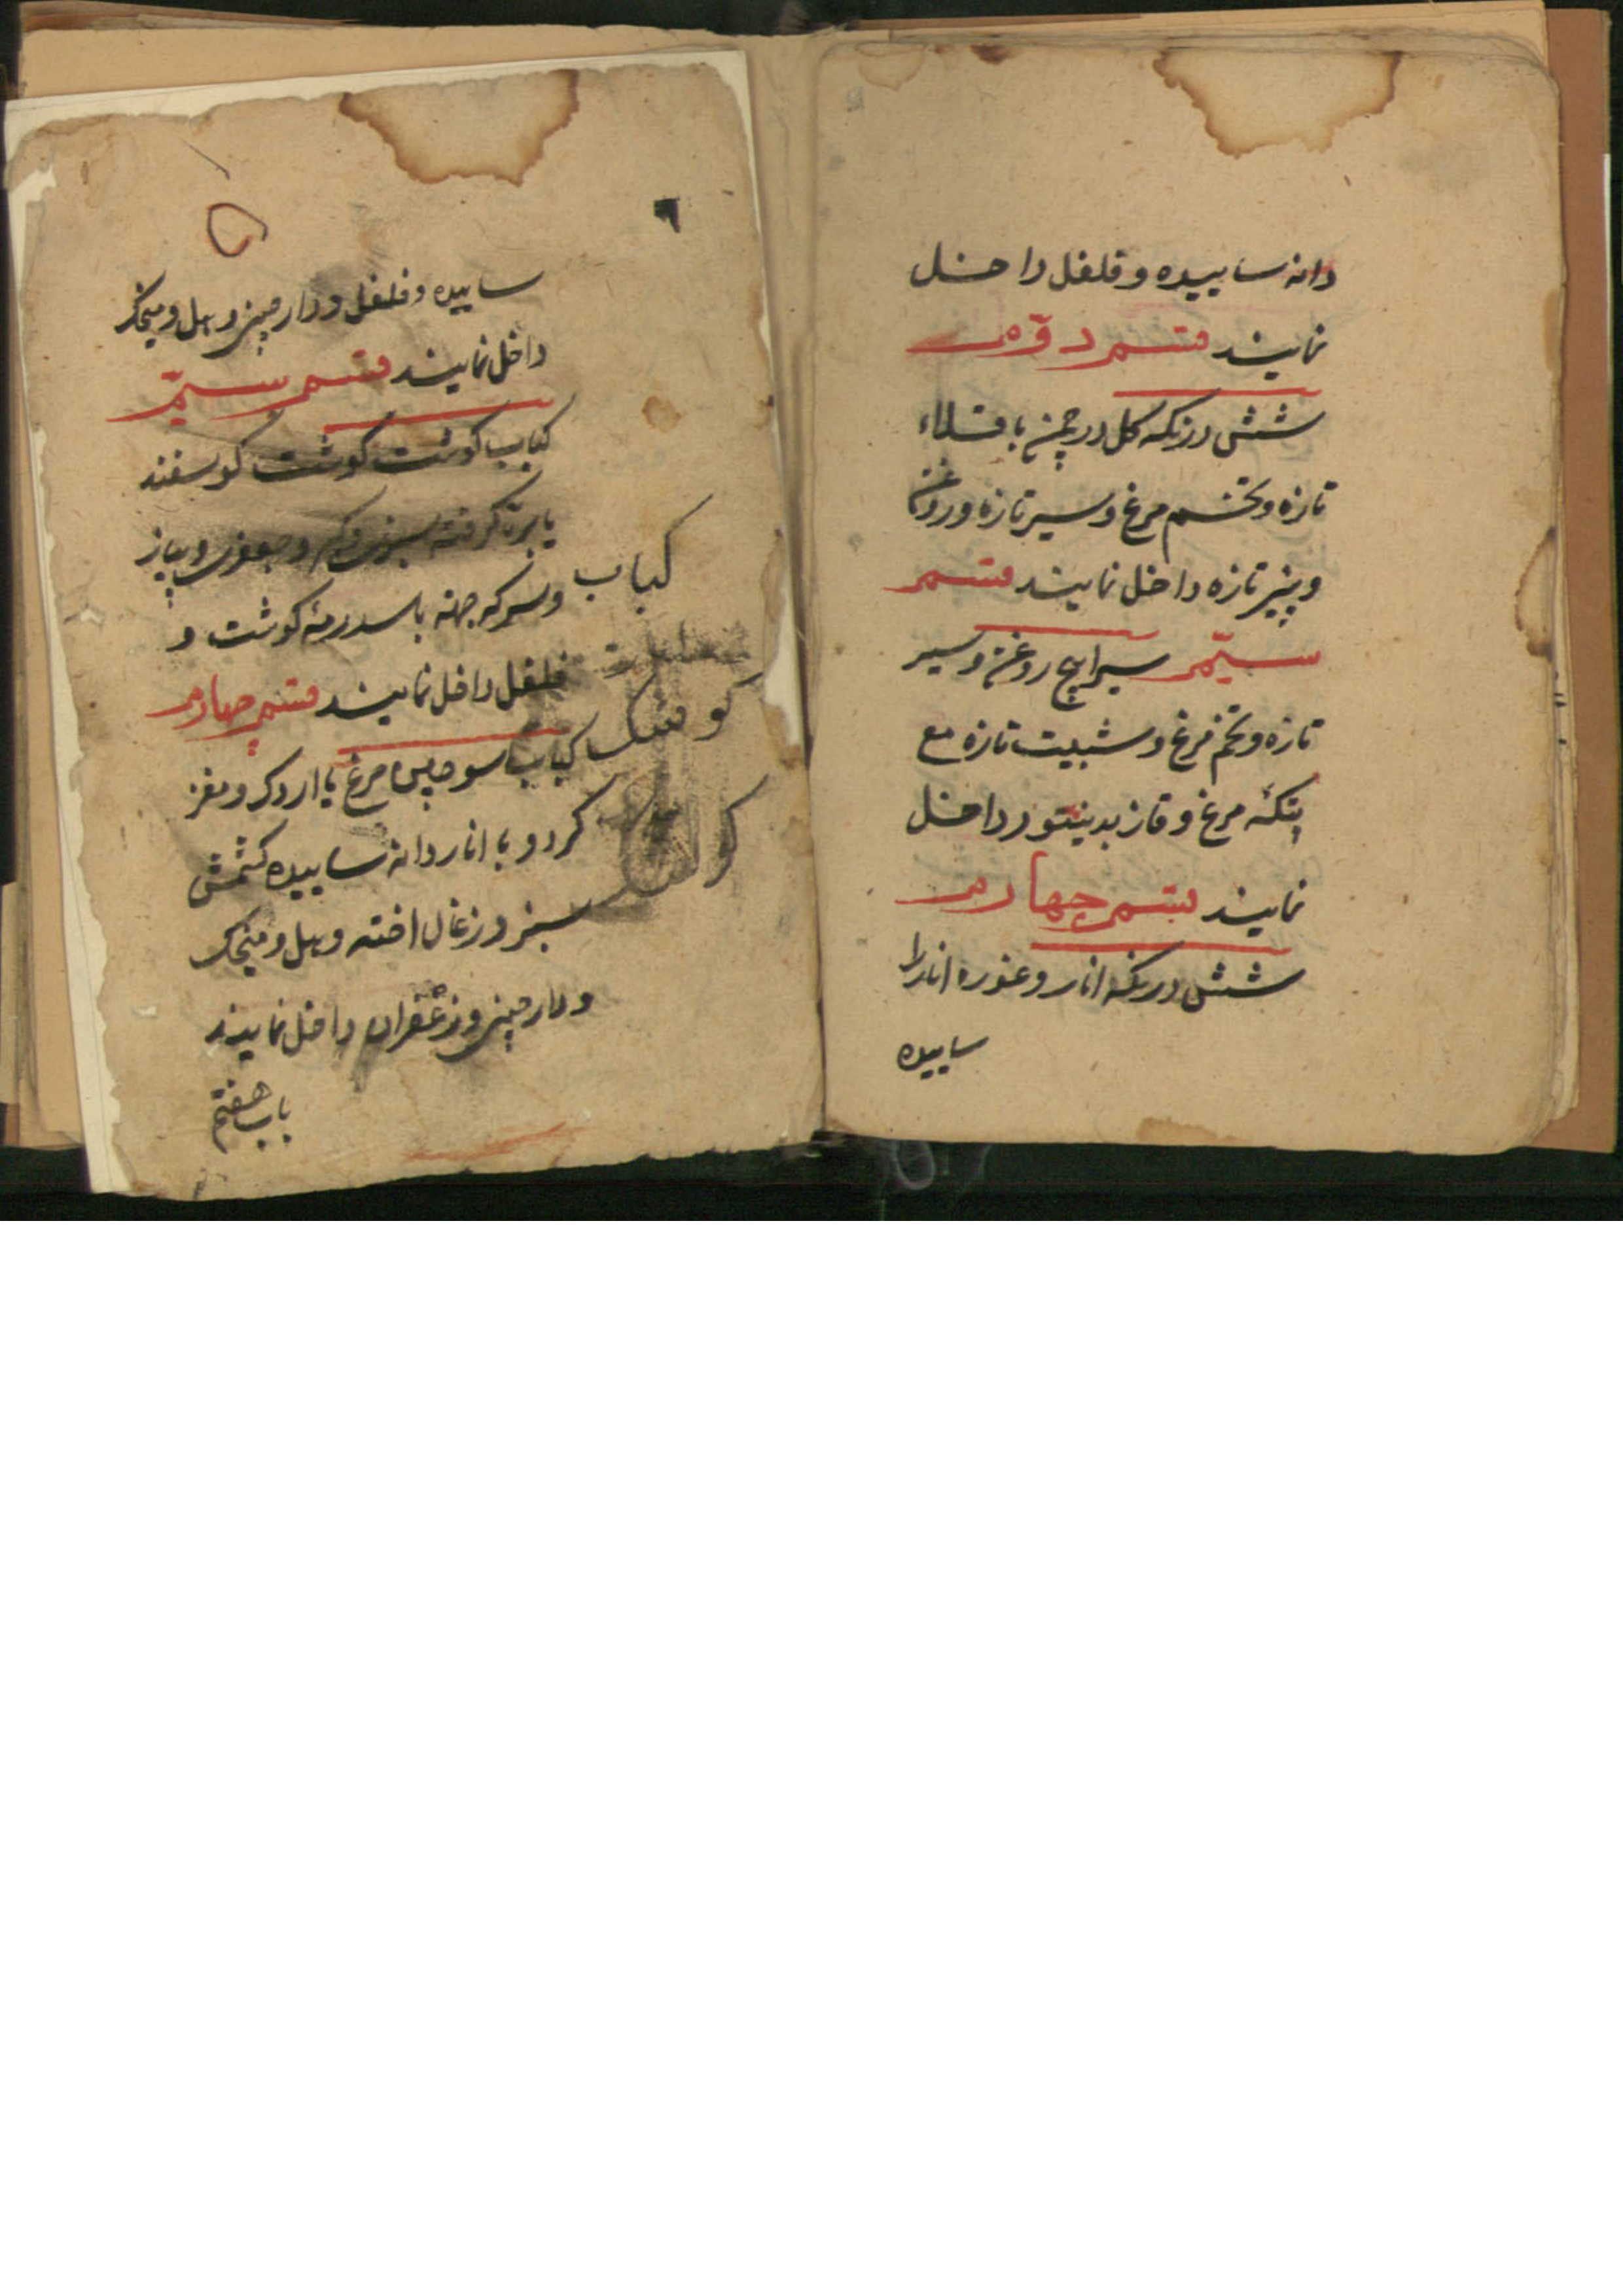 دانه ساییده و فلفل داخل
نمایند قسم دوّم
شش درنکه کل در چمن باقلاء
تازه و تخم مرغ و سیر تازه و روغن
و پنیر تازه داخل نمایند قسم
سیّم سیرابج روغن و سیر
تازه و تخم مرغ و شبیت تازه مع
پتکهٔ مرغ و قاز بدینتور داخل
نمایند قسم چهارم
شش درنکه انار و غوره انار را
ساییده
۶
ساییده و فلفل و دارچینی و هل و میخک
داخل نمایند قسم سیّم
کباب کوشت کوشت کوسفند
یا بره کرفته سبزی و جعفری و پیاز
و سرکه جهته با کوشت و
فلفل داخل نمایند قسم چهارم
کباب مرغ یا اردک و مغز
کردو با انار دانه ساییده کشمش
سبز در زغال اخته و هل و میخک
و دارچینی و زعفران داخل نمایند
باب هفتم
کباب